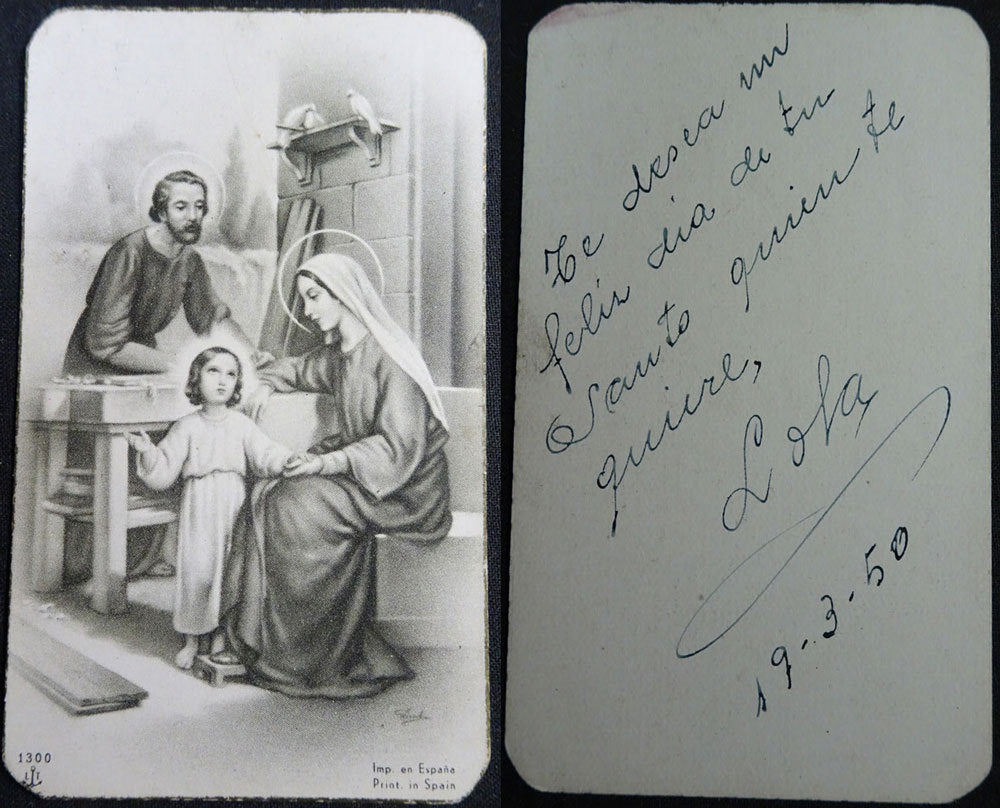 1300
Imp. en España
Print. in Spain
Te desea un
feliz dia de tu
Santo quien te
quiere,
Lola
19-3-50